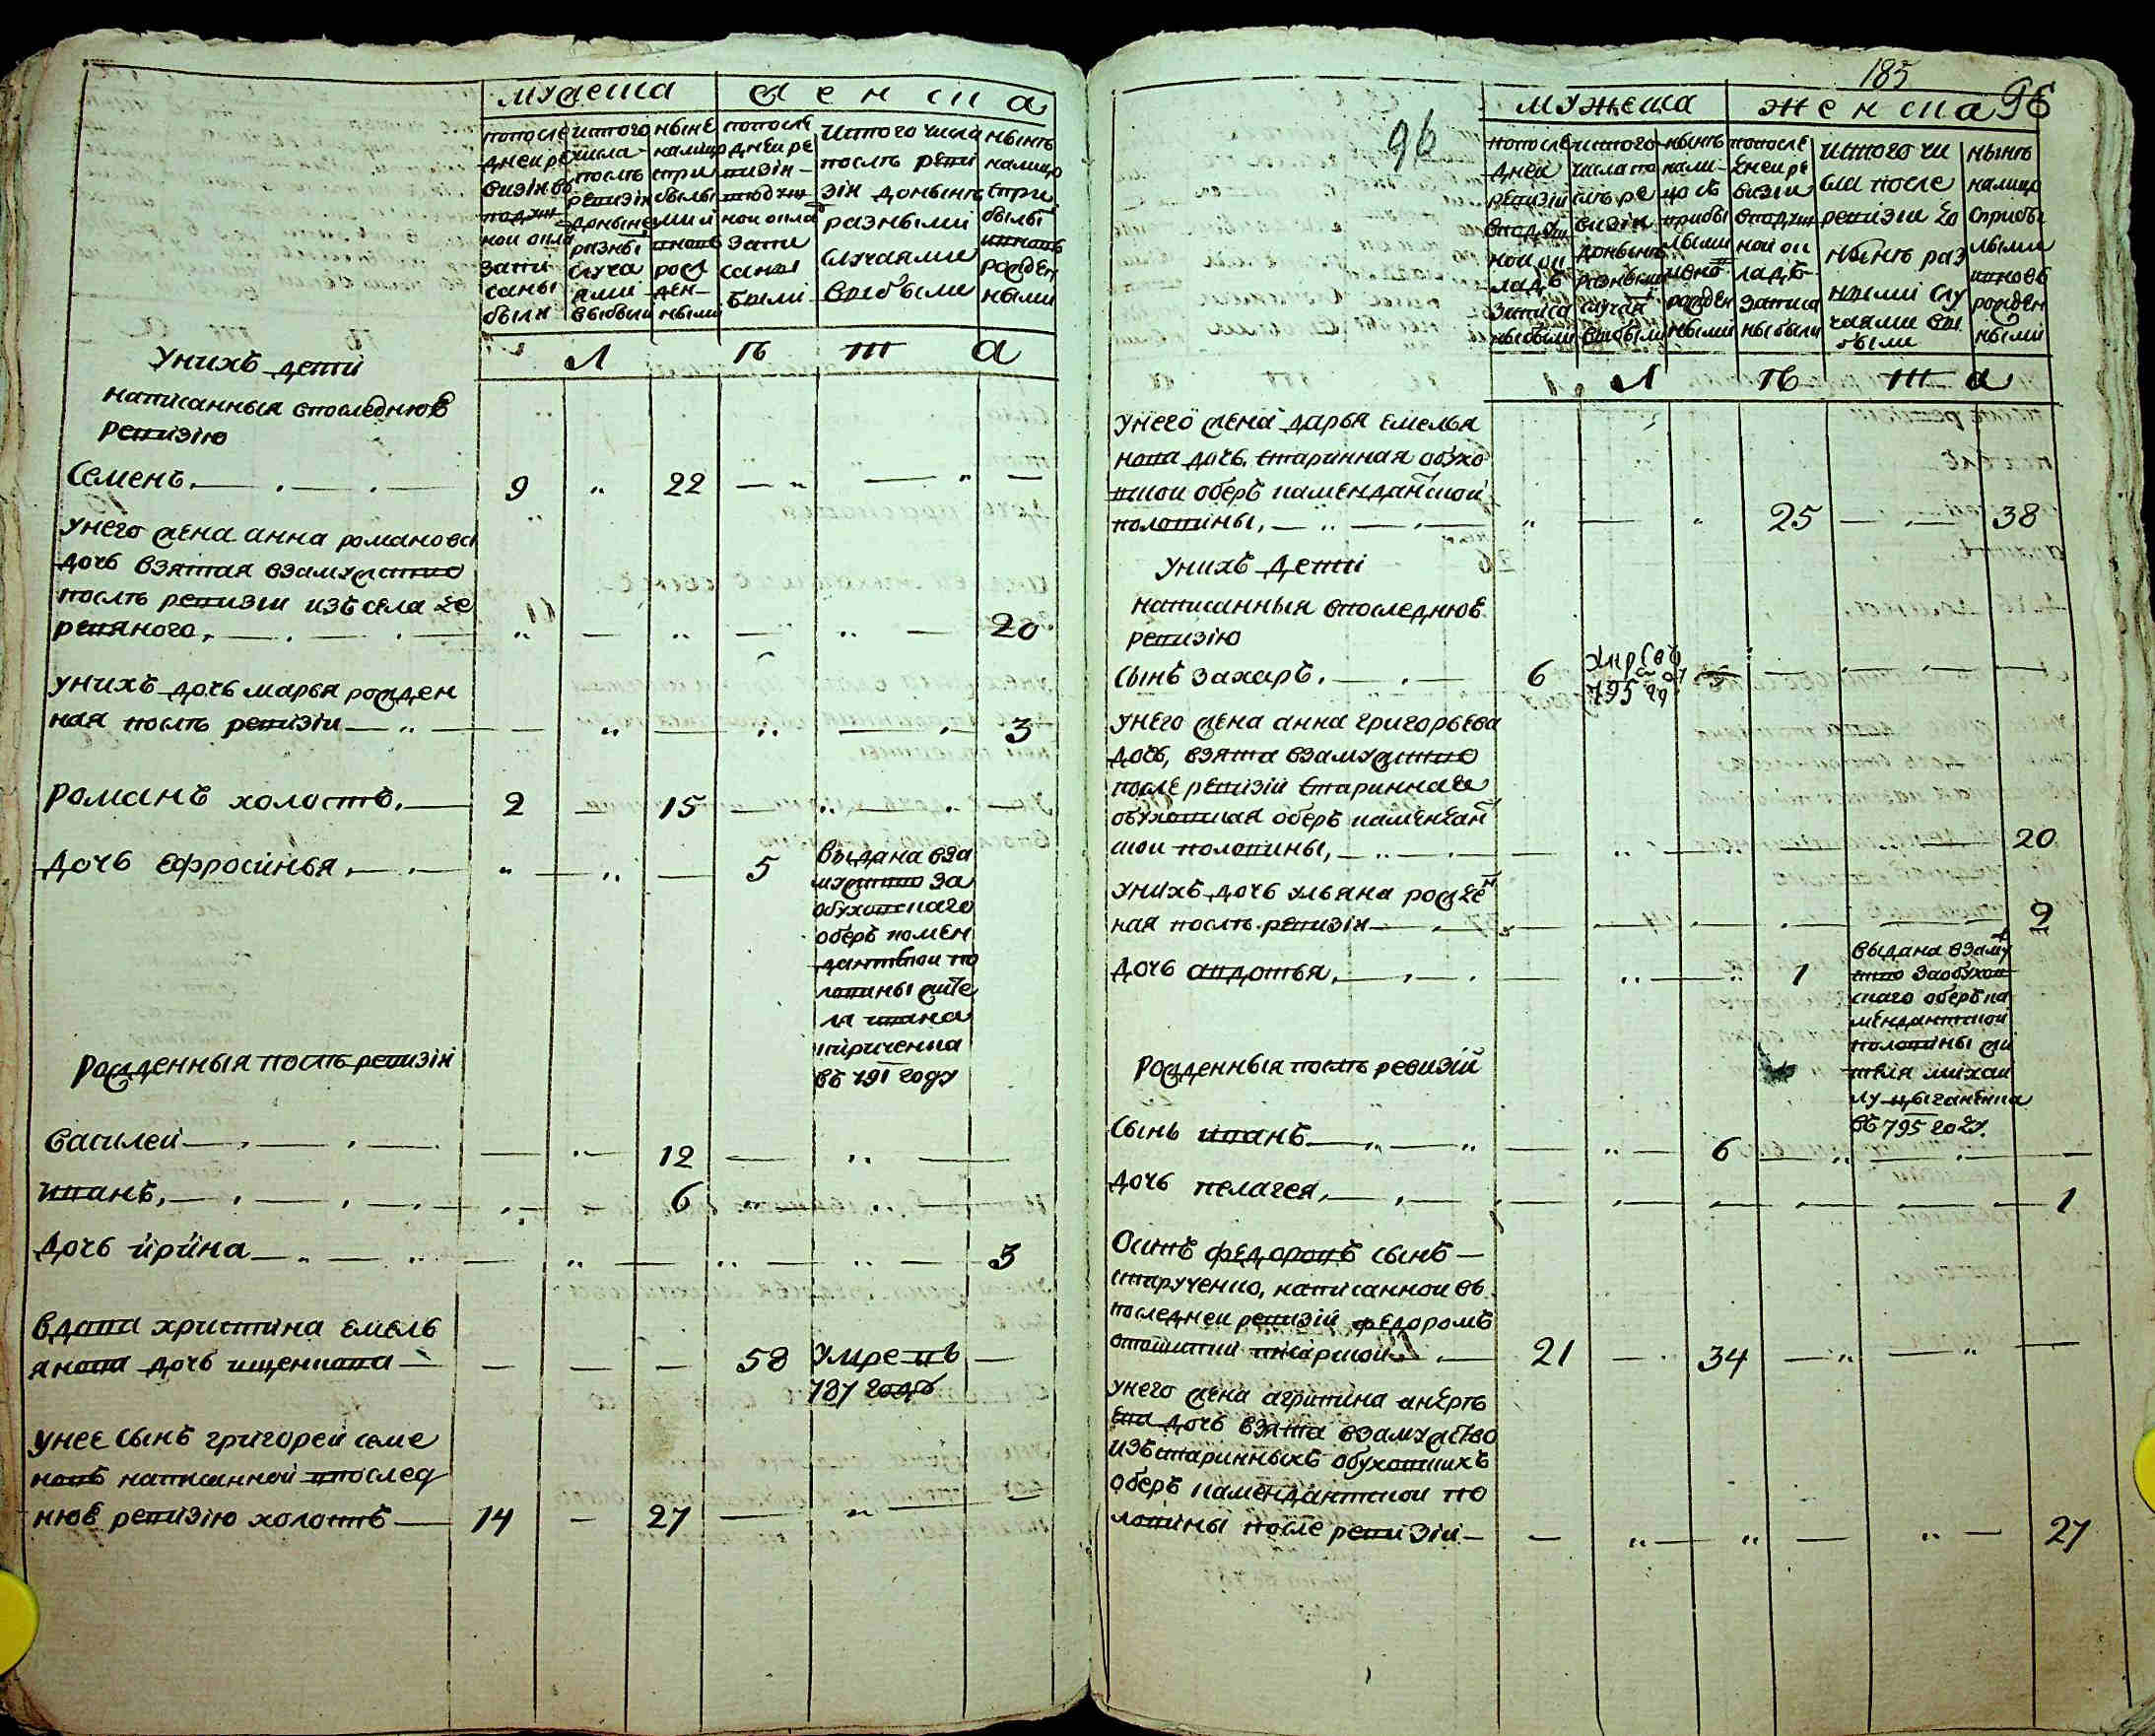 мужеска
женска
попосле
дней ре
визіи въ
подуш
ной окла
запи
саны
были
истого
числа
послѣ
ревизіи
доныне
разны
случа
ями
выбыли
нынѣ
налицо
спри
былы
ми и
вновь
рож
ден
ными
попосле
дней ре
визіи
въ подуш
ной окла
запи
саны
были
истого числа
послѣ реви
зіи донынѣ
разными
случаями
выбыли
нынѣ
налицо
спри
былы
ивновь
рожден
ными
Л ѣ т а
Унихъ дети
написанныя впоследнюю
ревизію
Семенъ 9 22
унего жена анна романова
дочь взятая взамужство
послѣ ревизіи изъ села де
ревяного, 20
унихъ дочь марья рожден
ная послѣ ревизіи 3
романъ холостъ, 2 15
дочь ефросинья, 5
выдана вза
мужство за
обуховскаго
оберъ комен
дантской по
ловины жите
ля ивана
кириченка
въ 791 году
Рожденныя послѣ ревизіи
василей 12
иванъ, 6
дочь ирина 3
вдова христина емель
янова дочь ищенкова 58 умре въ
787 годѣ
унее сынъ григорей семе
новъ написанной впослед
нюю ревизію холостъ 14 27
185
96
96
мужеска
женска
попосле
дней
ревизіи
вподуш
ной ок
ладъ
записа
ны были
истого
числа по
слѣ ре
визіи
донынѣ
разными
случаи
выбыли
нынѣ
нали
цо съ
прибы
лыми
рожден
ными
попосле
дней ре
визіи
вподуш
ной ок
ладъ
записа
ны были
истого чи
сла после
ревизіи до
нынѣ раз
ными слу
чаями вы
были
нынѣ
налицо
сприбы
лыми
ивновь
рожден
ными
Л ѣ т а
унего жена дарья емелья
нова дочь, старинная обухо
вской оберъ камендантской
половины, 25 38
унихъ дети
написанныя впоследнюю
ревизію
сынъ захаръ. 6
795
унего жена анна григорьева
дочь, взята взамужство
после ревизіи стариннаго
обуховская оберъ камендант
ской половины, 20
унихъ дочь ульяна рожден
ная послѣ ревизіи 2
дочь авдотья, 1
выдана взаму
ство заобухов
скаго оберъ ка
мендантской
половины жи
теля михаи
лу цыганенка
въ 795 году.
Рожденныя послѣ ревизіи
сынъ иванъ 6
дочь пелагея, 1
Осипъ федоровъ сынъ
старученко, написанной въ
последней ревизіи федоромъ
21 34
унего жена агрипина
дочь взята взамужство
изъ старинныхъ обуховскихъ
оберъ камендантской по
ловины после ревизіи 27